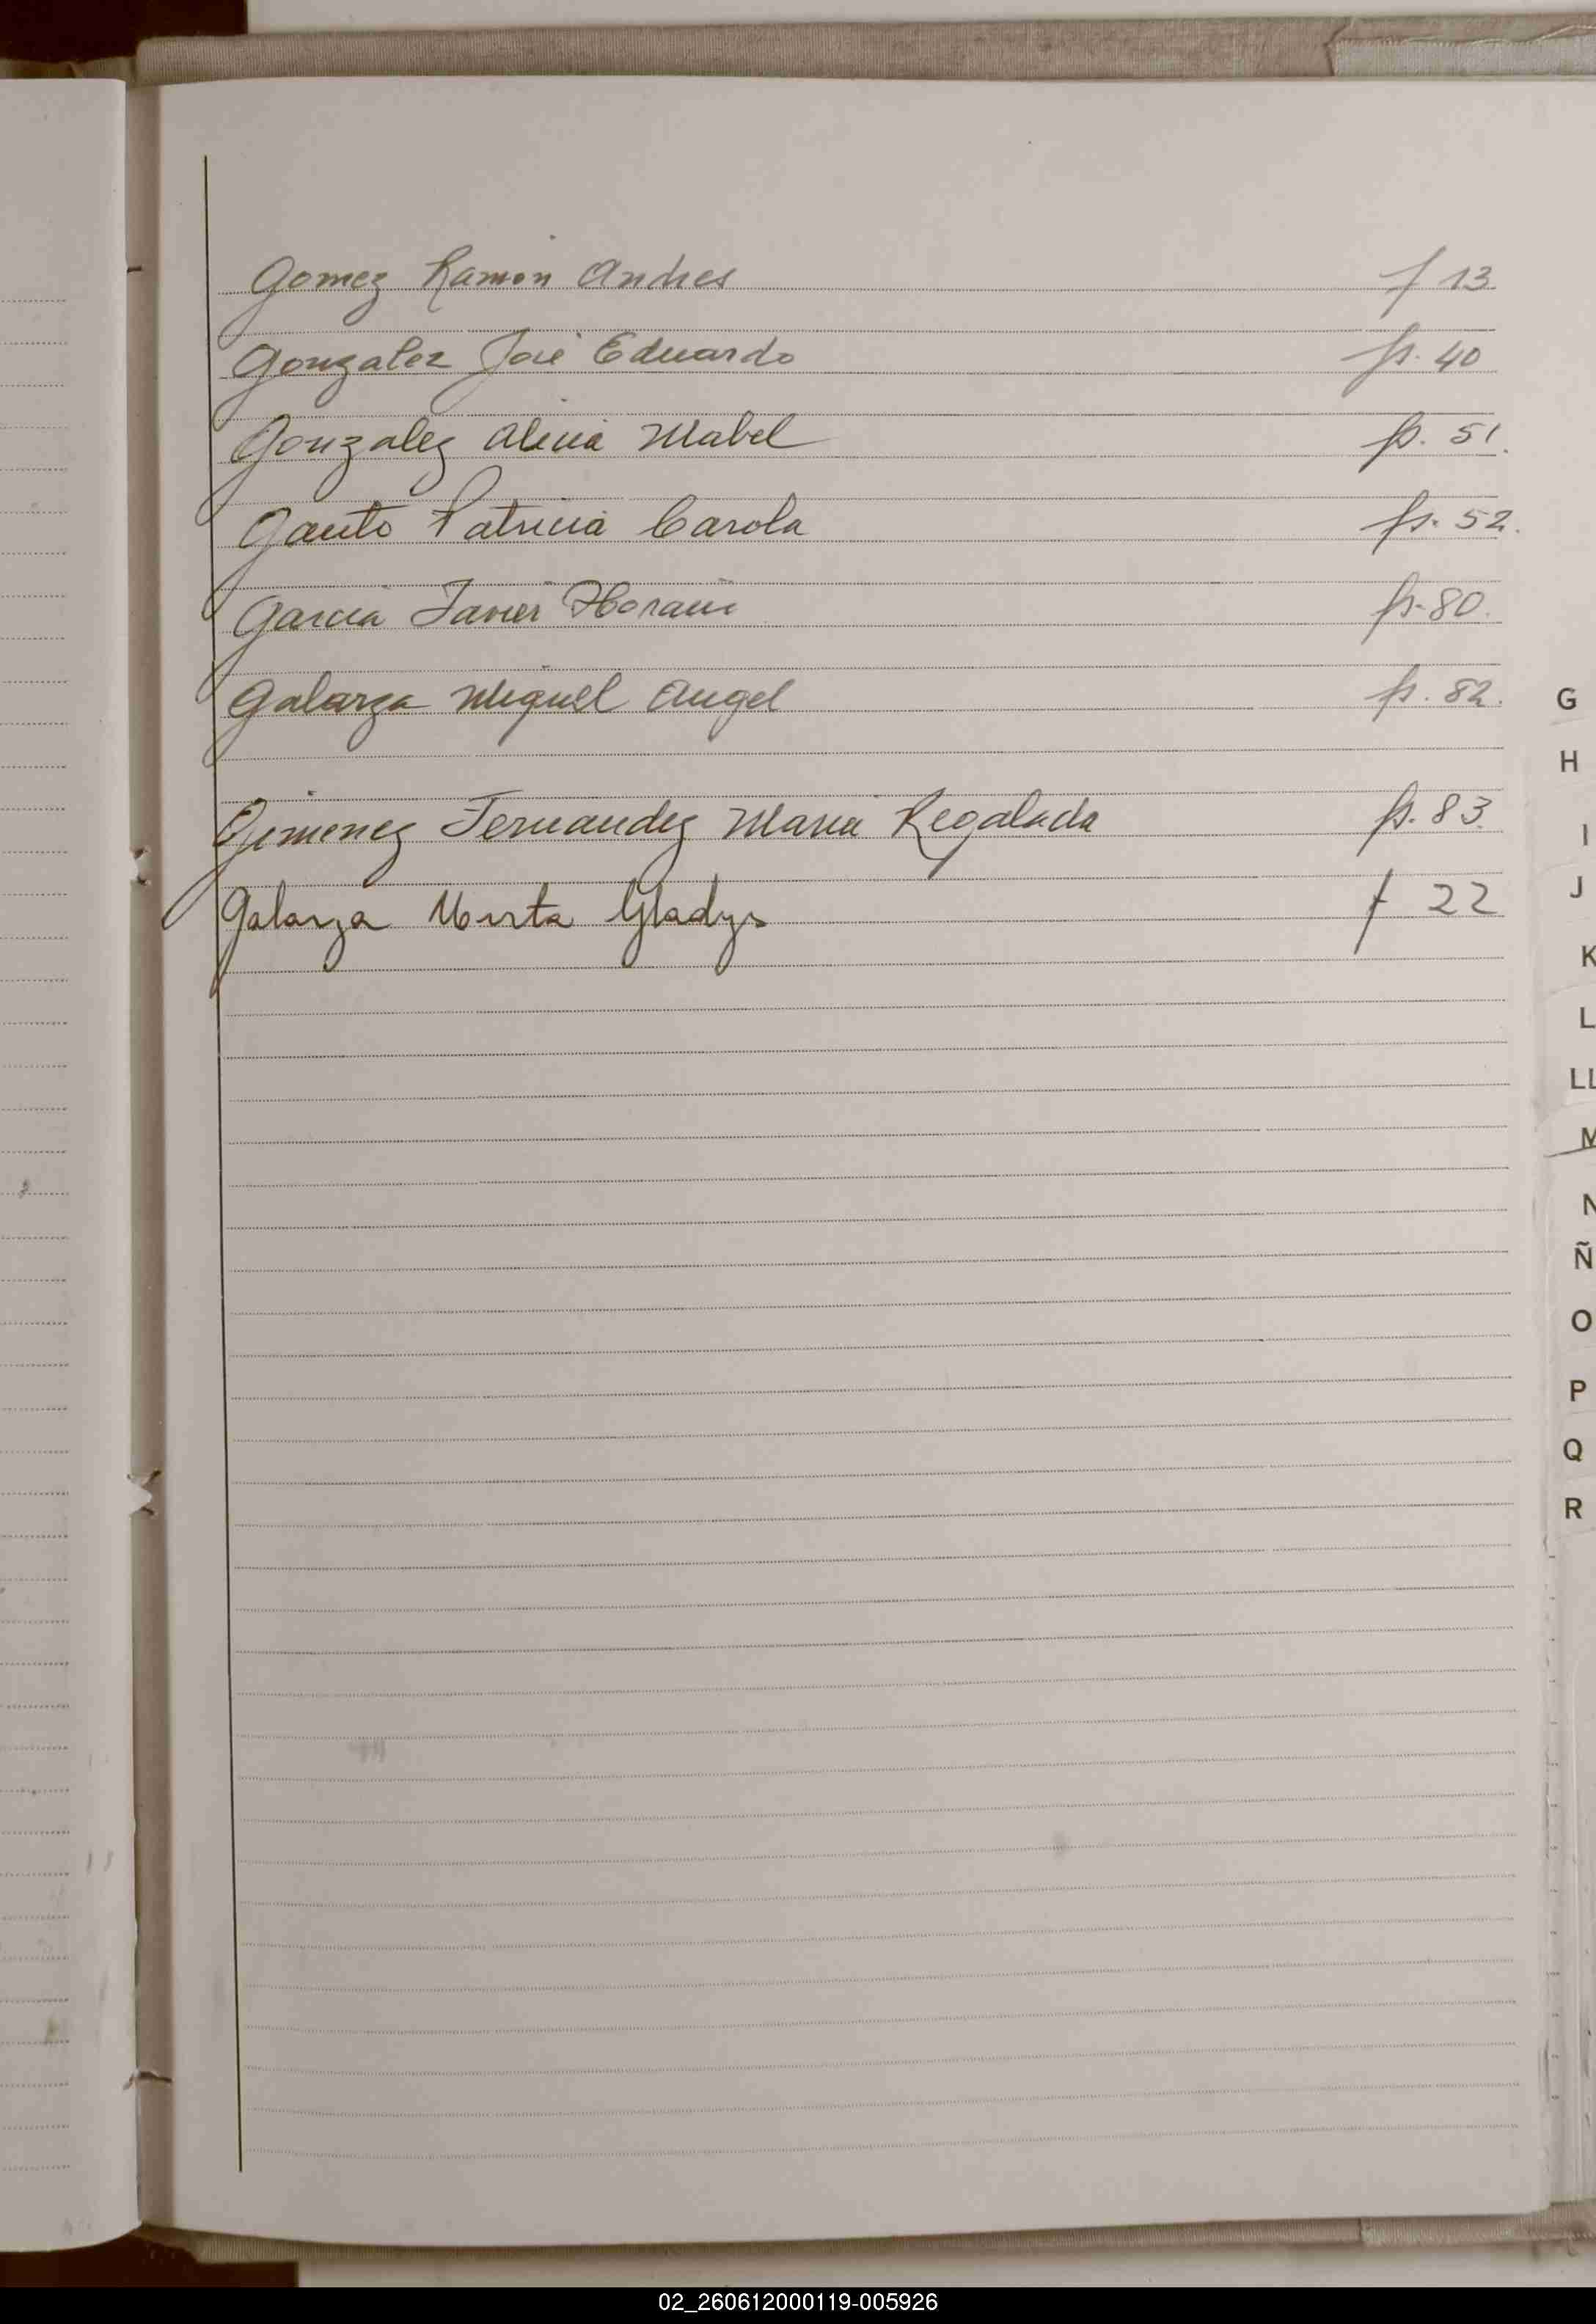 Gomez Ramon Andres f 13
Gonzalez José Eduardo fs. 40
Gonzalez Alicia Mabel fs. 51.
Gauto Patricia Carola fs. 52.
Garcia Javier Horacio fs. 80.
Galarza Miguel Angel fs. 82.
G
H
Gimenez Fernandez Maria Regalada fs. 83.
I
Galarza Mirta Gladys f 22
J
K
L
LL
M
N
Ñ
O
P
Q
R
02_260612000119-005926